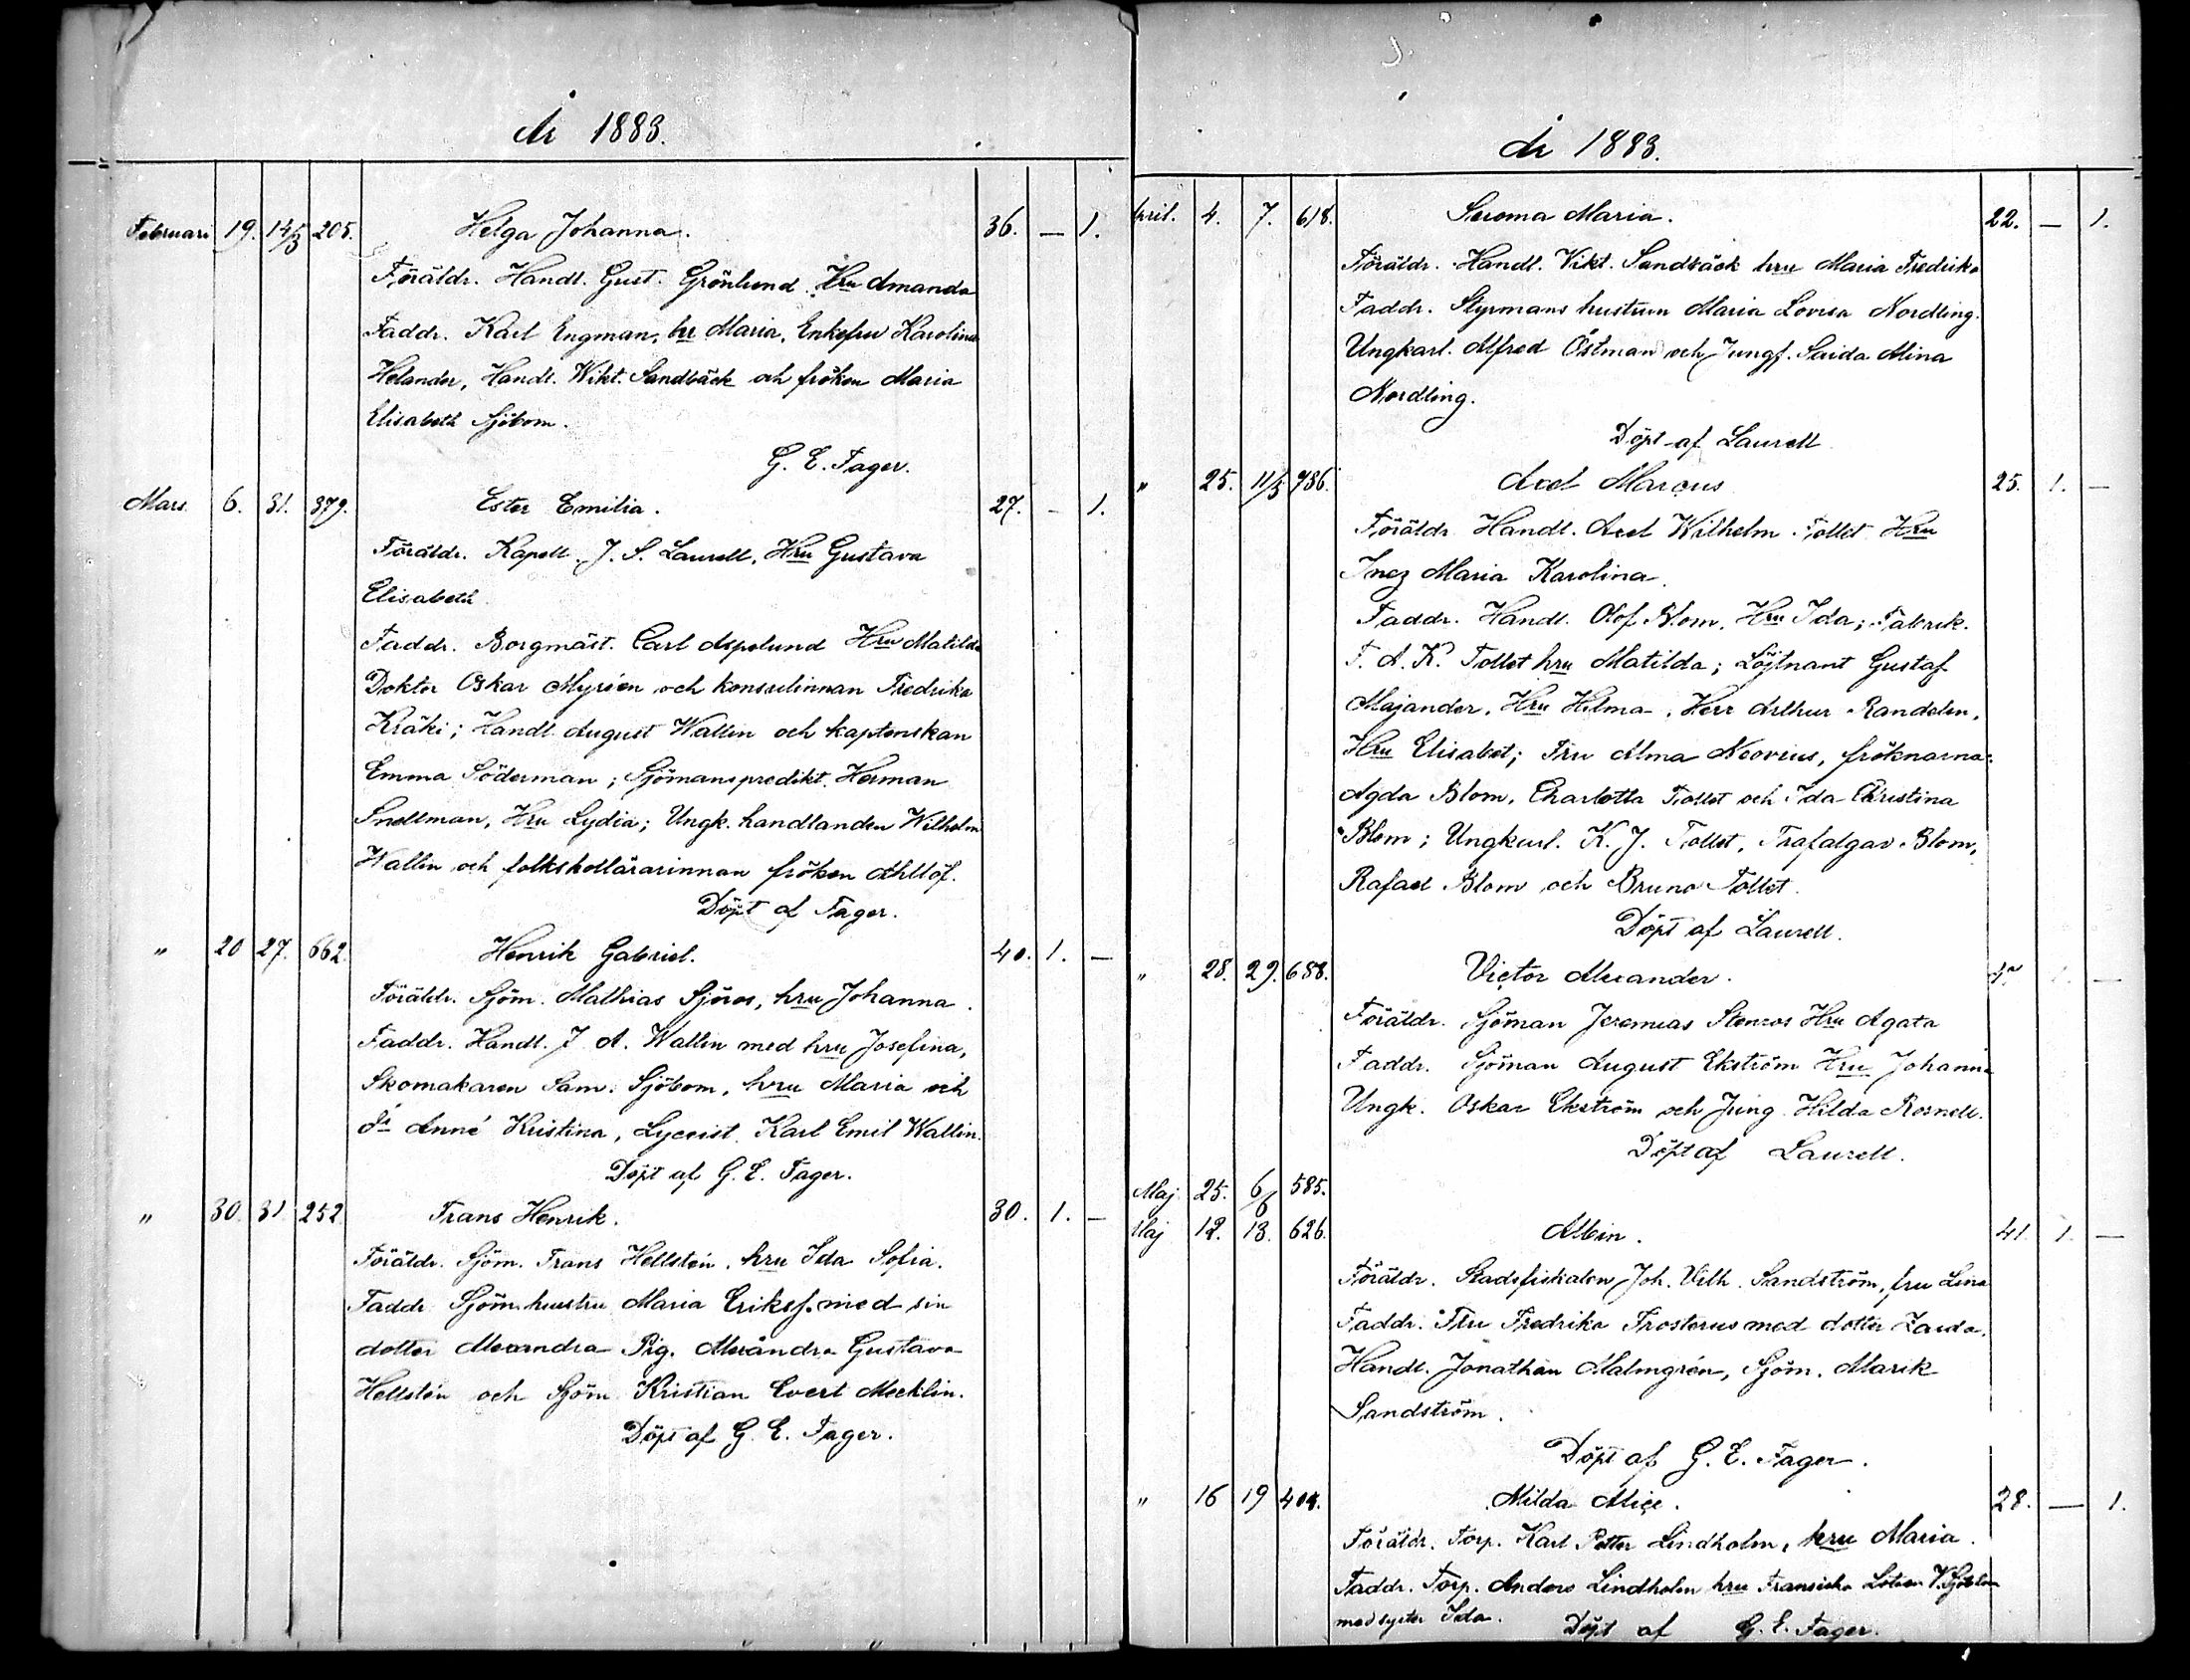 År 1883.
Februari 19. 14/3 205. Helga Johanna. 36. — 1.
Föräldr. Handl. Gust. Grönlund Hru Amanda
Faddr. Karl Engman, hru Maria, Enkefru Karolina
Helander, Handl. Wikt. Sandbäck och fröken Maria
Elisabeth Sjöbom.
G. E. Fager.
Mars 6. 31. 379. Ester Emilia. 27. - 1.
Föräldr. Kapell. J. S. Laurell, Hru Gustava
Elisabeth
Faddr. Borgmäst. Carl Aspelund Hru Matilda
Doktor Oskar Myréen och konsulinnan Fredrika
Kräki; Handl. August Wallin och kaptenskan
Emma Söderman; Sjömanspredikt. Herman
Snellman, Hru Lydia; Ungk. handlanden Wilhelm
Wallin och folkskollärarinnan fröken Ahllöf.
Döpt af Fager.
" 20 27. 662. Henrik Gabriel. 40. 1. —
Föräldr. Sjöm. Mathias Sjöros, hru Johanna.
Faddr. Handl. J. A. Wallin med hru Josefina,
Skomakaren Sam. Sjöbom, hru Maria och
Anna Kristina, Lyceist. Karl Emil Wallin.
Döpt af G. E. Fager.
" 30. 31. 252. Frans Henrik. 30. 1. —
Föräldr. Sjöm. Frans Hellstén, hru Ida Sofia.
Faddr. Sjöm. hustru Maria Eriksf. med sin
dotter Alexandra Pig. Alexandra Gustava
Hellstén och Sjöm. Kristian Evert Mecklin.
Döpt af G. E. Fager.
År 1883.
pril. 4. 7. 618. Maria. 22. — 1.
Föräldr. Handl. Vikt. Sandbäck hru Maria Fredrika
Faddr. Styrmans hustrun Maria Lovisa Nordling.
Ungkarl. Alfred Östman och Jungf. Saida Alina
Nordling.
Döpt af Laurell
" 25. 11/5 736. Axel Marcus 25. 1. —
Föräldr. Handl. Axel Wilhelm Tollet Hru
Inez Maria Karolina.
Faddr. Handl. Olof Blom, Hru Ida; Fabrik.
F. A. K. Tollet hru Matilda; Löjtnant Gustaf
Majander, Hru Hilma, Herr Arthur Randelin,
Hru Elisabet; Fru Alma Neovius, fröknarna:
Agda Blom, Charlotta Tollet och Ida Christina
Blom; Ungkarl. K. J. Tollet, Trafalgar Blom,
Rafael Blom och Bruno Tollet.
Döpt af Laurell.
" 28. 29. 688. Victor Alexander. 1. —
Föräldr. Sjöman Jeremias Stenros Hru Agata
Faddr. Sjöman August Ekström Hru Johanna
Ungk. Oskar Ekström och Jung. Hilda Rosnell.
Döpt af Laurell.
Maj 25. 6/6 585.
Maj 12. 13. 626. Albin. 41. 1. —
Föräldr. Stadsfiskalen Joh. Vilh. Sandström, fru Lina
Faddr. Fru Fredrika Frosterus med dotter Zaida.
Handl. Jonathan Malmgrén, Sjöm. Marik
Sandström.
Döpt af G. E. Fager.
" 16 19 404. Milda Alice. 28. — 1.
Föräldr. Torp. Karl Petter Lindholm, hru Maria.
Faddr. Torp. Anders Lindholm hru Fransiska Lotsen V. Sjöblom
med syster Ida. Döpt af G. E. Fager.